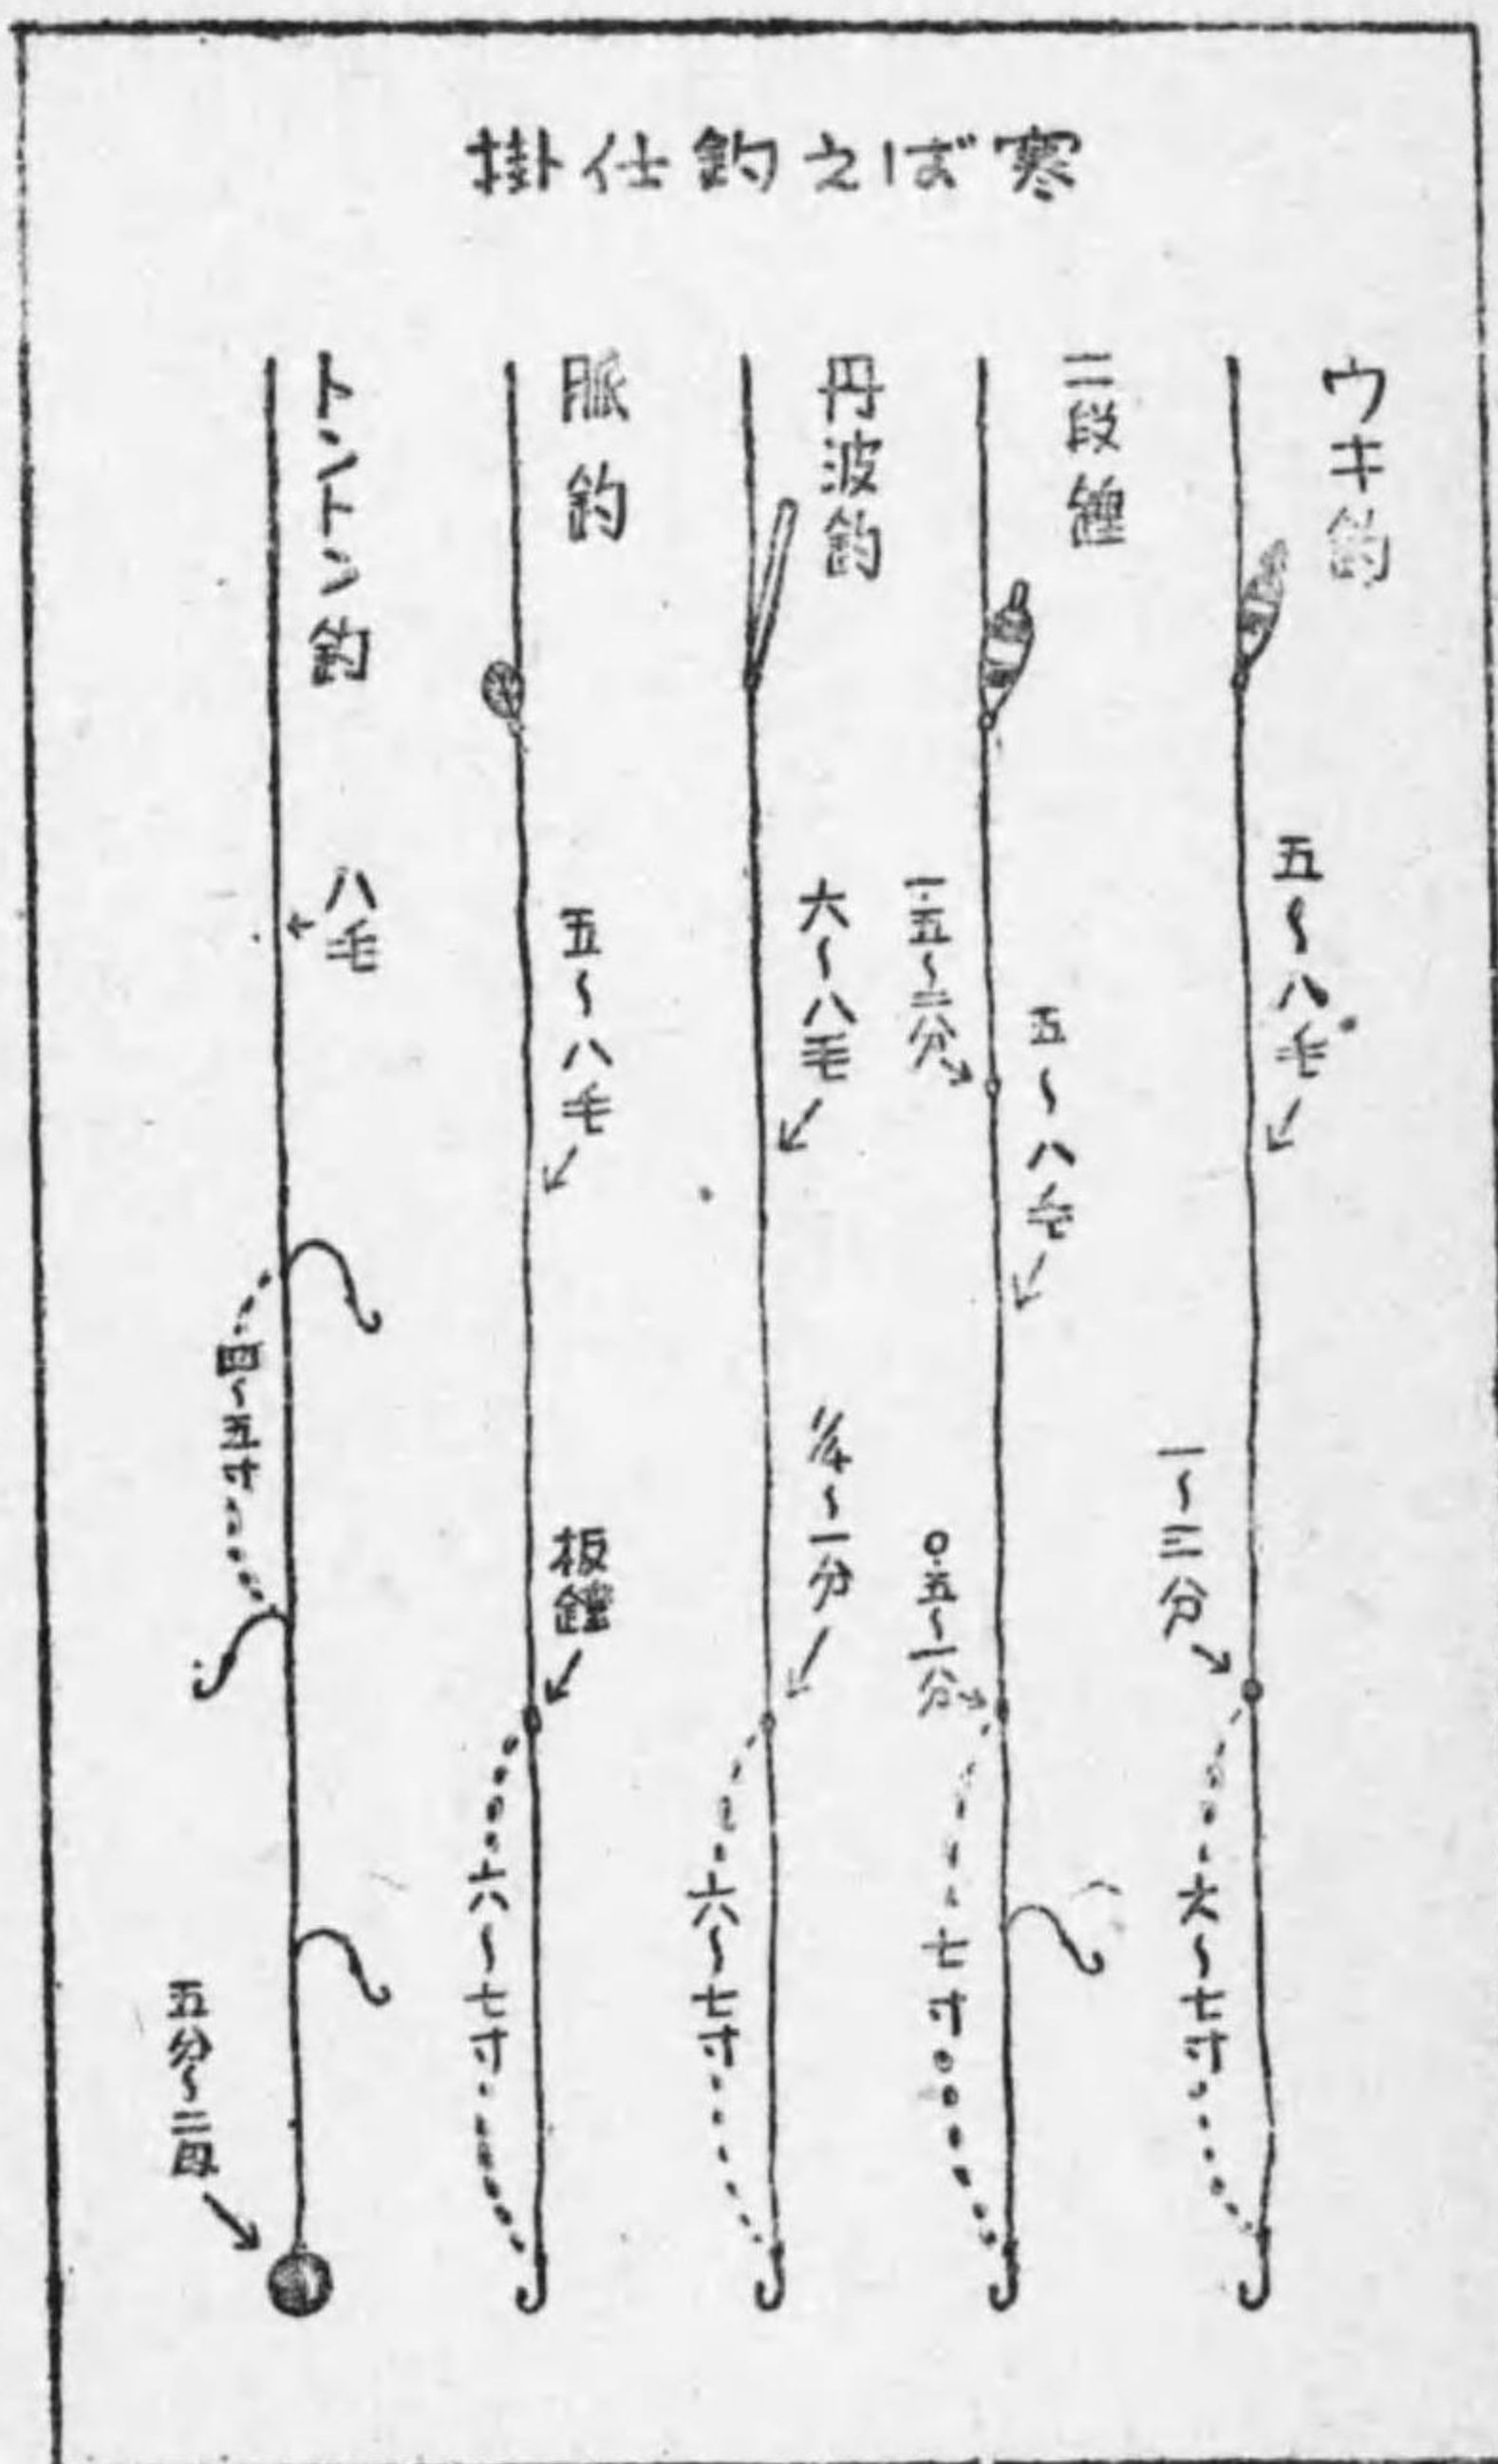 寒ばえ釣仕掛
ウキ釣
五〜八毛
一〜三分
六〜七寸
二段錘
一.五〜二分
五〜八毛
〇.五〜一分
七寸
丹波釣
六〜八毛
〜一分
六〜七寸
脈釣
五〜八毛
板錘
六〜七寸
トントン釣
八毛
四〜五寸
五分〜二匁